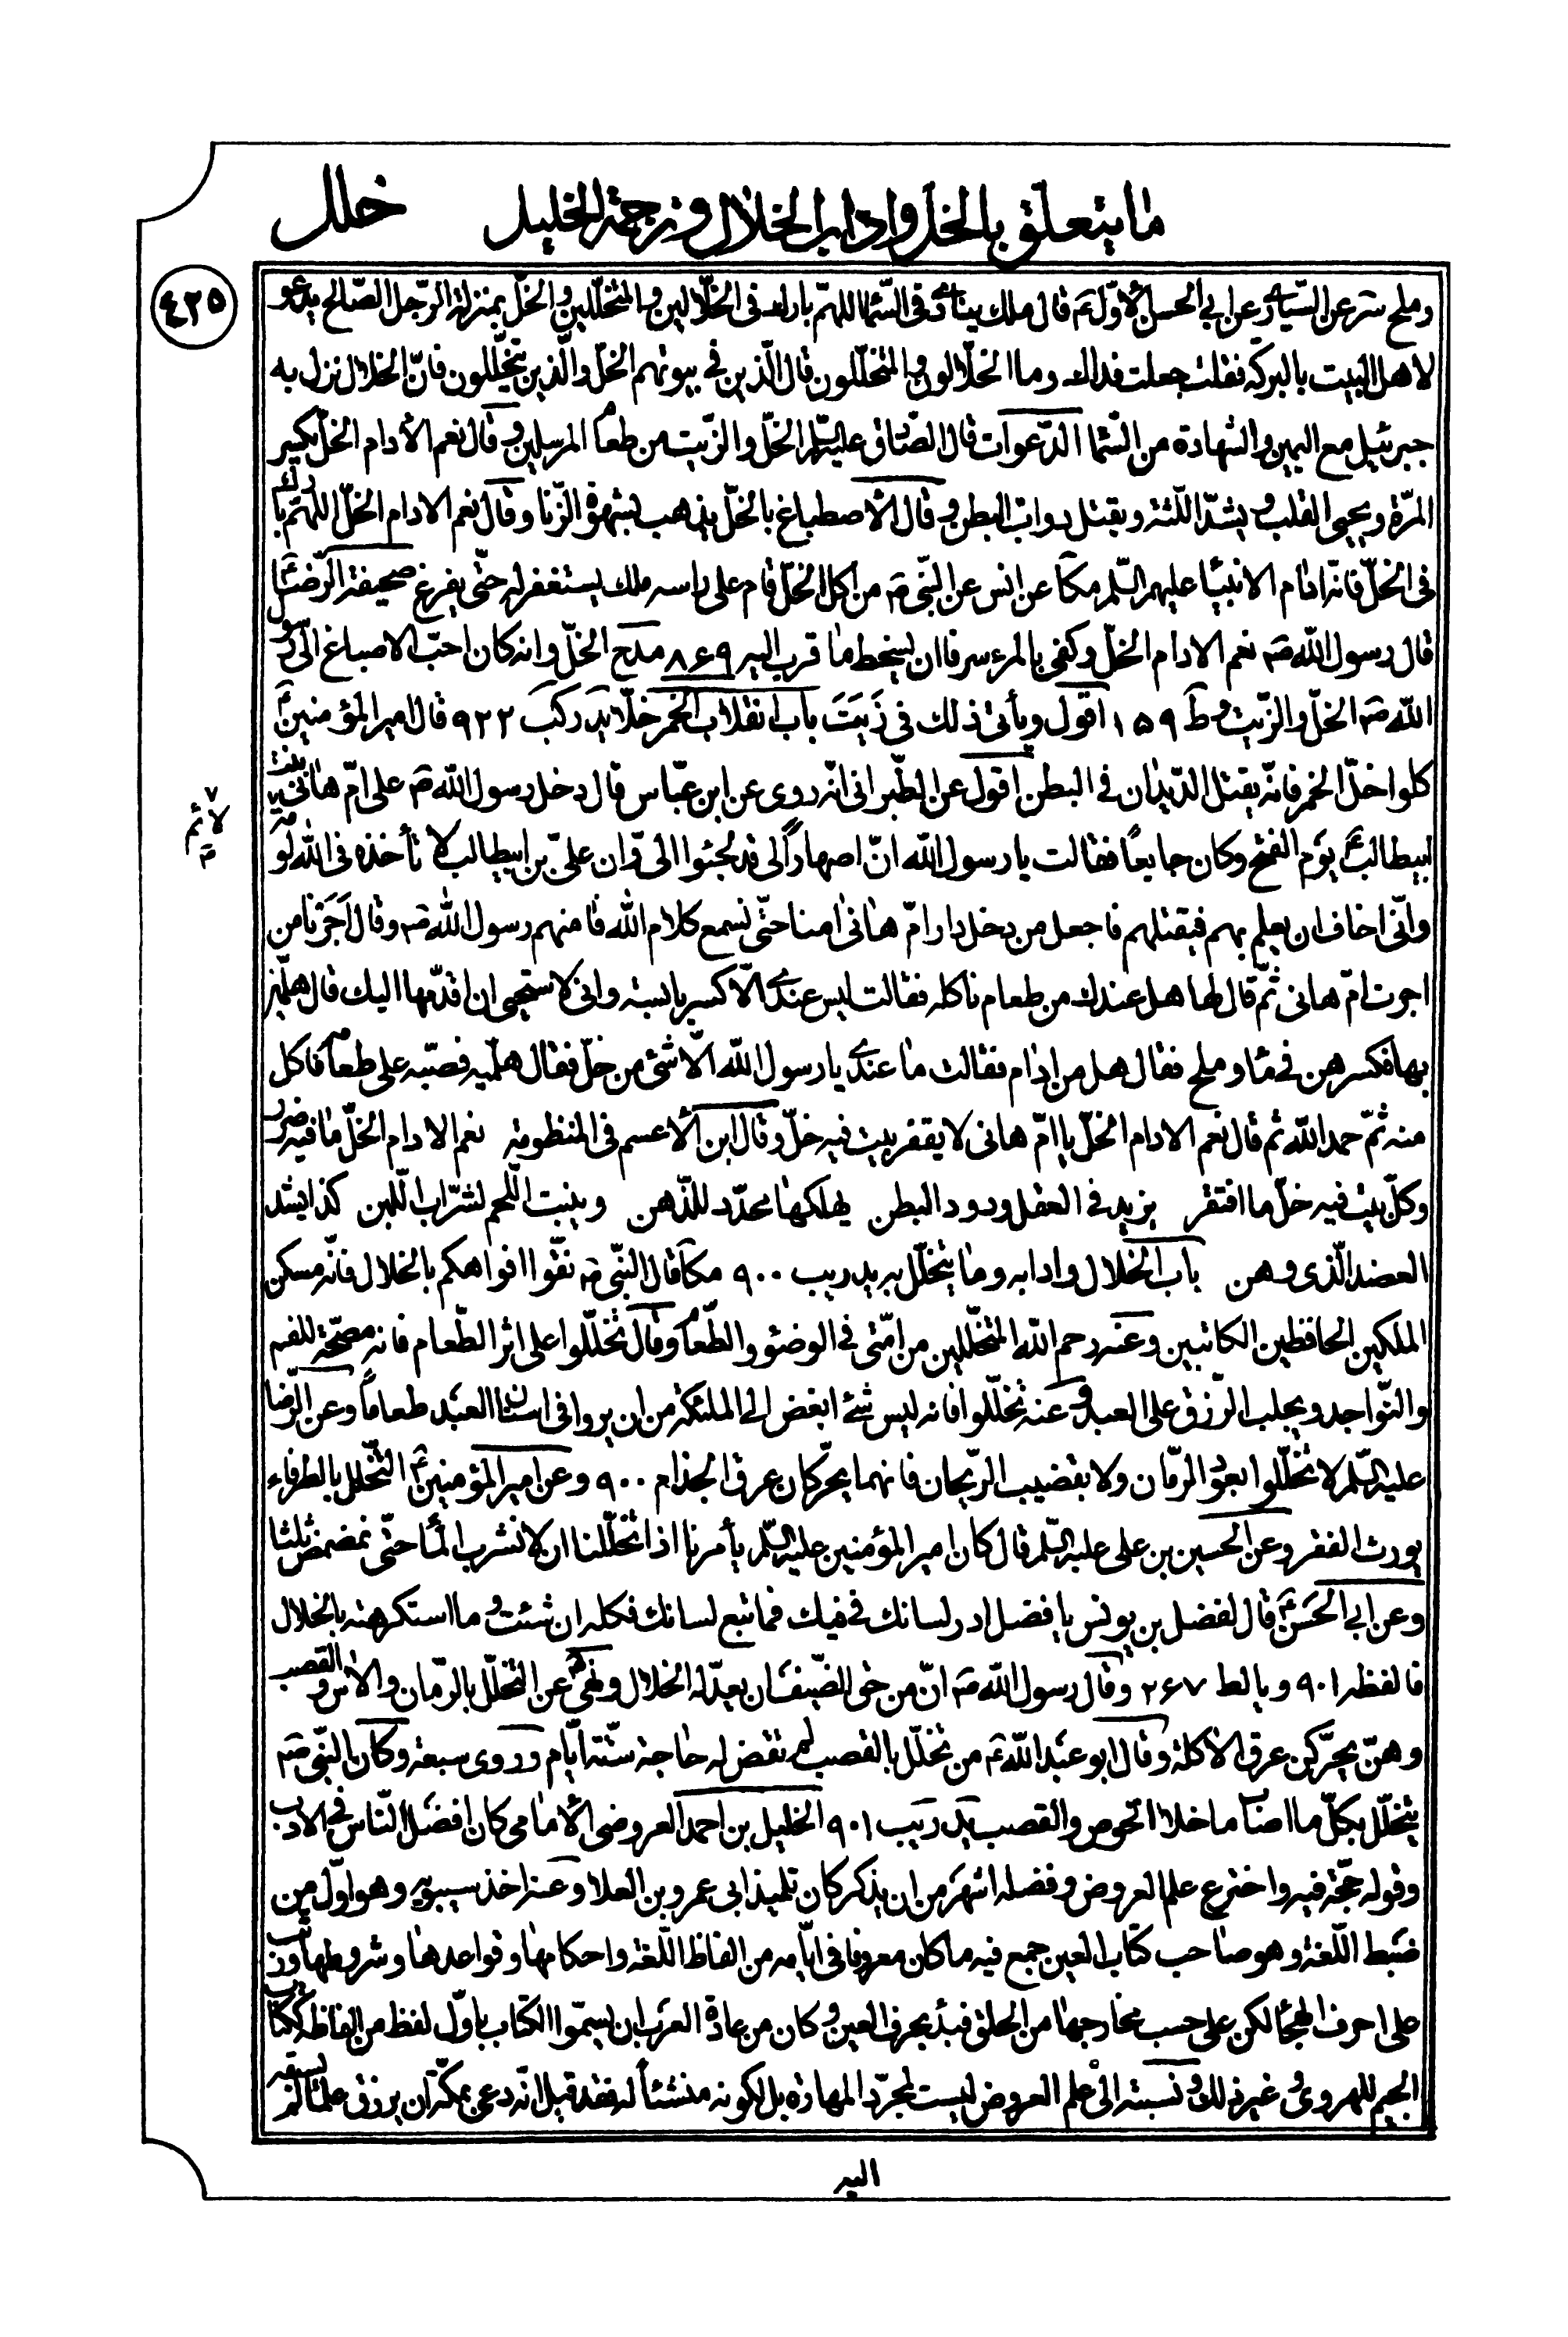 ما يتعلق بالخلّ واداب الخلال وترجمة الخليل
خلل
٤٢٥
وملح سر عن السيّارى عن ابى الحسن الأوّل ع قال ملك ينادى فى السّما اللهمّ بارك فى الخلّالين والمتخلّلين والخلّ بمنزلة الرّجل الصّالح يدعو
لاهل البيت بالبركة فقلت جعلت فداك وما الخلّالون والمتخلّلون قال الّذين فى بيوتهم الخلّ والّذين يتخلّلون فانّ الخلال نزل به
جبرئيل مع اليمين والشهادة من السّما الدّعوات قال الصّادق عليه السّلم الخلّ والزّيت من طعام المرسلين وقال نعم الأدام الخلّ يكسر
المرّة ويحيى القلب ويشدّ اللّثة ويقتل دواب البطن وقال الأصطباغ بالخلّ يذهب بشهوة الزّنا وقال نعم الادام الخلّ اللهمّ بارك
فى الخلّ فانّه ادام الانبيا عليهم السّلم مكا عن انس عن النّبى ص من اكل الخلّ قام على راسه ملك يستغفر له حتّى يفرغ صحيفة الرّضا ع
قال رسول الله ص نعم الادام الخلّ وكفى بالمرء سرفا ان يسخط ما قرب اليه ٨٦٩ مدح الخلّ وانه كان احبّ الاصباغ الى رسول
الله ص الخلّ والزّيت وط ١٥٩ اقول ويأتى ذلك فى زَيَتَ باب انقلاب الخمر خلّا يد ركب ٩٢٢ قال امير المؤمنين ع
كلوا خلّ الخمر فانّه يقتل الدّيدان فى البطن اقول عن الطّبرانى انّه روى عن ابن عبّاس قال دخل رسول الله ص على امّ هانى بنت
ابيطالب ع يوم الفتح وكان جايعاً فقالت يا رسول الله انّ اصهاراً لى قد لجئوا الى وان علىّ بن ابيطالب لا تأخذه فى الله لومة
لائم
وانّى اخاف ان يعلم بهم فيقتلهم فاجعل من دخل دار امّ هانى امنا حتّى نسمع كلام الله فامنهم رسول الله ص وقال اَجَرْنا من
اجرت امّ هانى ثمّ قال لها هل عندك من طعام ناكله فقالت ليس عندى الّا كسر يابسة وانى لاستحيى ان اقدّمها اليك قال هلمّى
بها فكسرهن فى ما وملح فقال هل من ادام فقالت ما عندى يا رسول الله الّا شئ من خلّ فقال هلمّيه فصبّه على طعامه فاكل
منه ثمّ حمد الله ثم قال نعم الادام الخلّ يا امّ هانى لا يقفر بيت فيه خلّ وقال ابن الأعسم فى المنظومة نعم الادام الخلّ ما فيه ضرر
وكلّ بيت فيه خلّ ما افتقر يزيد فى العقل ودود البطن يهلكها محدّد للذّهن وينبت اللّحم لشرّاب اللّبن كذا يشد
العضد الّذى وهن باب الخلال وادابه وما يتخلّل به يد ريب ٩٠٠ مكا قال النّبى ص نقّوا افواهكم بالخلال فانّه مسكن
الملكين الحافظين الكاتبين وعنه رحم الله المتخلّلين من امّتى فى الوضوء والطّعام وقال تخلّلوا على اثر الطّعام فانه مصحّة للفم
والنّواجد ويجلب الرّزق على العبد وعنه تخلّلوا فانه ليس شئ ابغض الى الملئكة من ان يروا فى اسنان العبد طعاماً وعن الرّضا
عليه السّلم لا تخلّلوا بعود الرمّان ولا بقضيب الرّيحان فانهما يحرّكان عرق الجذام ٩٠٠ وعن امير المؤمنين ع التّخلل بالطرفاء
يورث الفقر وعن الحسين بن على عليه السّلم قال كان امير المؤمنين عليه السّلم يأمرنا اذا تخلّلنا ان لا نشرب الما حتّى نمضمض ثلثا
وعن ابى الحَسَن ع قال لفضل بن يونس يا فضل ادر لسانك فى فيك فما تبع لسانك فكله ان شئت وما استكرهته بالخلال
فالفظه ٩٠١ ويالط ٢٦٧ وقال رسول الله ص انّ من حق الضّيف ان يعدّ له الخلال ونهى عن التخلّل بالرّمان والاس والقصب
وهنّ يحرّكن عرق الاكلة وقال ابو عبد الله ع من تخلّل بالقصب لم تقض له حاجة ستّة ايّام وروى سبعة وكان النّبى ص
يتخلّل بكلّ ما اصاب ما خلا الخوص والقصب يد ريب ٩٠١ الخليل بن احمد العروضى الأمامى كان افضل النّاس فى الادب
وقوله حجّة فيه واخترع علم العروض وفضله اشهر من ان يذكر كان تلميذ ابى عمرو بن العلا وعنه اخذ سيبويه وهو اوّل من
ضبط اللّغة وهو صاحب كتاب العين جمع فيه ما كان معروفا فى ايّامه من الفاظ اللّغة واحكامها وقواعدها وشروطها ورتّب
على احرف الهجا لكن على حسب مخارجها من الحلق فبدء بحرف العين وكان من عادة العرب ان يسمّوا الكتاب باوّل لفظ من الفاظه ككتاب
الجيم للهروى وغير ذلك ونسبته الى علم العروض ليست لمجرّد المهارة بل لكونه منشئاً له فقد قيل انّه دعى بمكّة ان يرزق علما لم يسبقه
اليه